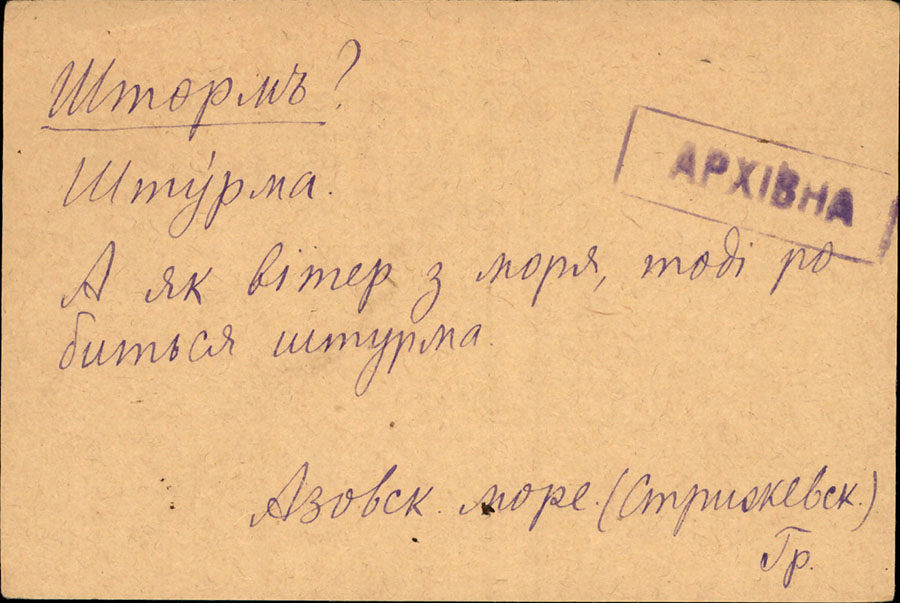 Штормъ?
Шту́рма.
АРХІВНА
А як вітер з моря, тоді ро
биться штурма.
Азовск. море. (Стрижевск.)
Гр.